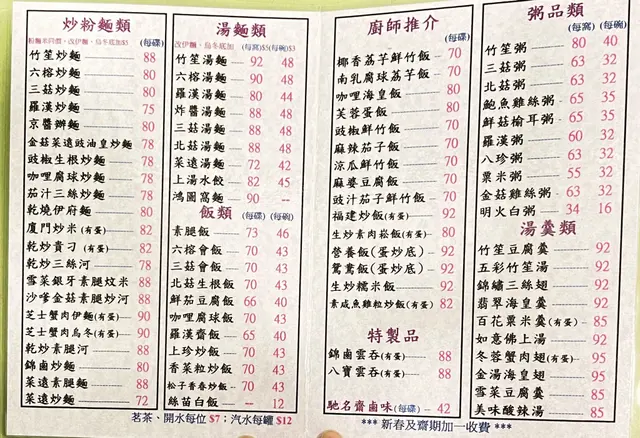 炒粉麵類
粉麵米同價，改伊麵、烏冬底加$5 (每碟)
竹笙炒麵 88
六榕炒麵 80
三菇炒麵 80
羅漢炒麵 75
京醬辦麵 80
金菇菜遠豉油皇炒麵 78
豉椒生根炒麵 78
咖喱腐球炒麵 78
茄汁三絲炒麵 78
乾燒伊府麵 80
廈門炒米(有蛋) 82
乾炒貴刁(有蛋) 82
乾炒三絲河 78
雪菜銀牙素腿炆米 88
沙嗲金菇素腿炒河 88
芝士蟹肉伊麵(有蛋) 90
芝士蟹肉烏冬(有蛋) 90
乾炒素腿河 88
錦鹵炒麵 80
菜遠素腿麵 88
菜遠炒麵 72
湯麵類
改伊麵、烏冬底加 (每窩)$5 (每碗)$3
竹笙湯麵 92 48
六榕湯麵 90 48
羅漢湯麵 80 44
炸醬湯麵 88 48
三菇湯麵 88 48
北菇湯麵 88 48
菜遠湯麵 72 42
上湯水餃 82 45
鴻圖窩麵 90 --
飯類 (每碟) (每碗)
素腿飯 73 46
六榕會飯 70 43
三菇會飯 70 43
北菇生根飯 70 43
鮮茄豆腐飯 66 40
咖喱腐球飯 70 43
羅漢齋飯 65 40
上珍炒飯 70 43
香菜粒炒飯 70 43
松子香春炒飯 70 43
絲苗白飯 -- 12
茗茶、開水每位 $7；汽水每罐 $12
廚師推介 (每碟)
椰香荔芋鮮竹飯 70
南乳腐球荔芋飯 70
咖喱海皇飯 80
芙蓉蛋飯 80
豉椒鮮竹飯 70
麻辣茄子飯 70
涼瓜鮮竹飯 70
麻婆豆腐飯 70
豉汁茄子鮮竹飯 70
福建炒飯(有蛋) 92
生炒素肉崧飯(有蛋) 80
營養飯(蛋炒底) 92
鴛鴦飯(蛋炒底) 92
生炒糯米飯 92
素咸魚雞粒炒飯(有蛋) 82
特製品
錦鹵雲吞(有蛋) 88
八寶雲吞(有蛋) 88
馳名齋鹵味(每碟) 42
粥品類
(每窩) (每碗)
竹笙粥 80 40
三菇粥 63 32
北菇粥 63 32
鮑魚雞絲粥 65 35
鮮菇榆耳粥 65 35
羅漢粥 60 32
八珍粥 63 32
粟米粥 55 32
金菇雞絲粥 63 32
明火白粥 34 16
湯羹類
竹笙豆腐羹 92
五彩竹笙湯 92
錦繡三絲翅 92
翡翠海皇羹 92
百花粟米羹(有蛋) 85
如意佛上湯 92
冬蓉蟹肉翅(有蛋) 95
金湯海皇翅 95
雪菜豆腐湯 85
美味酸辣湯 85
*** 新春及齋期加一收費 ***